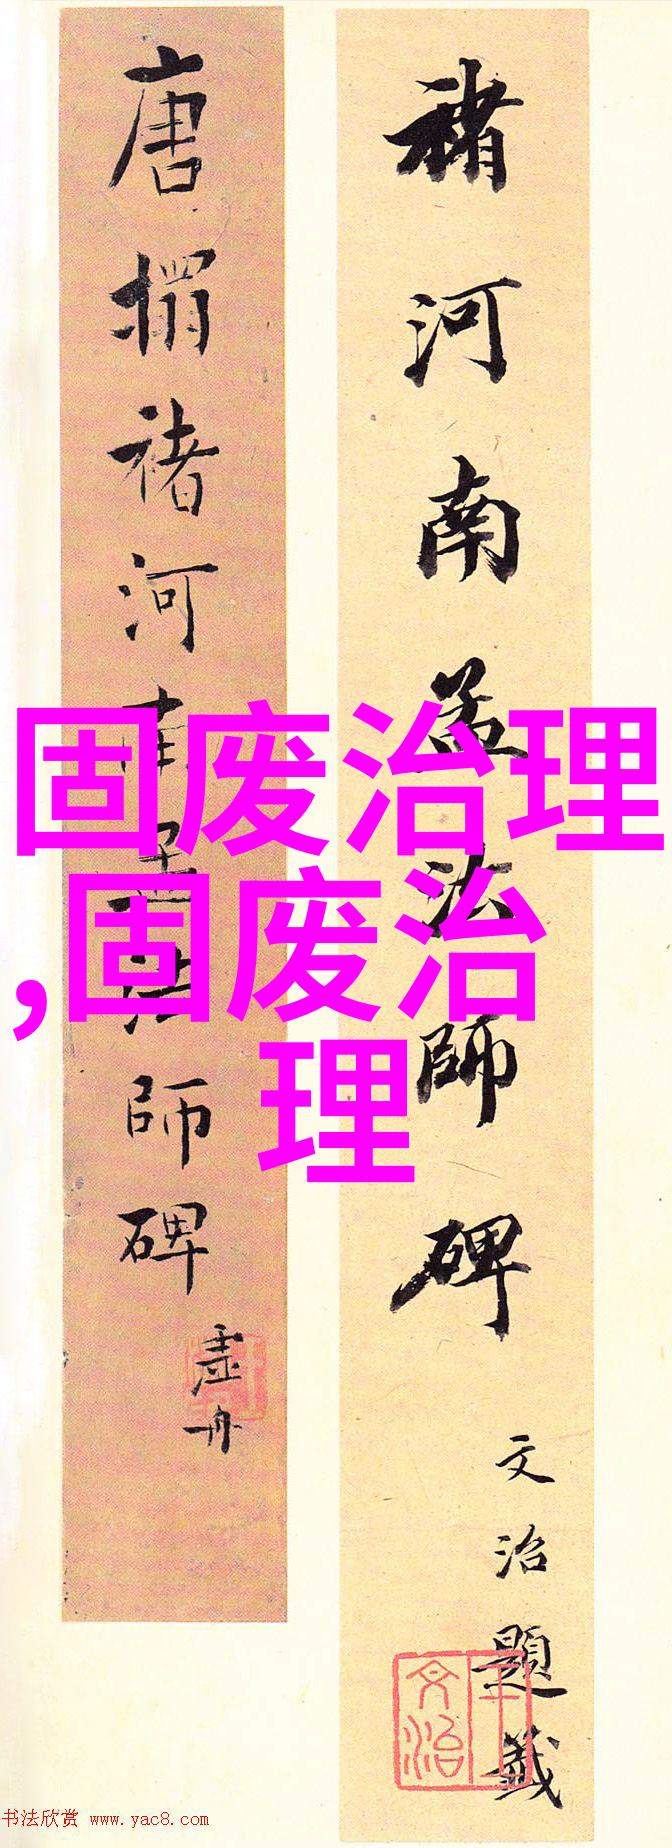 褚河南孟法師碑
文治題籤
王文治
唐搨褚河南孟法師碑
虛舟
固废治理
,固废治
理
书法欣赏 www.yac8.com